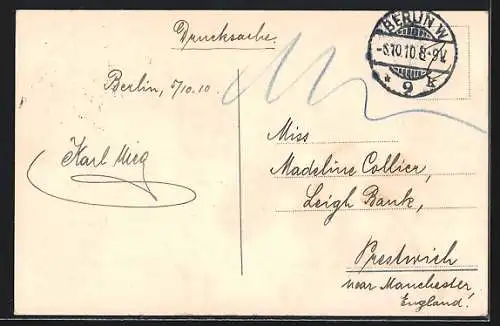 Drucksache.
BERLIN W
-6.10.10.8-9V.
* 9 k
Berlin, 5/10.10.
Karl Mieg
Miss
Madeline Collier,
Leigh Bank,
Prestwich
near Manchester,
England.